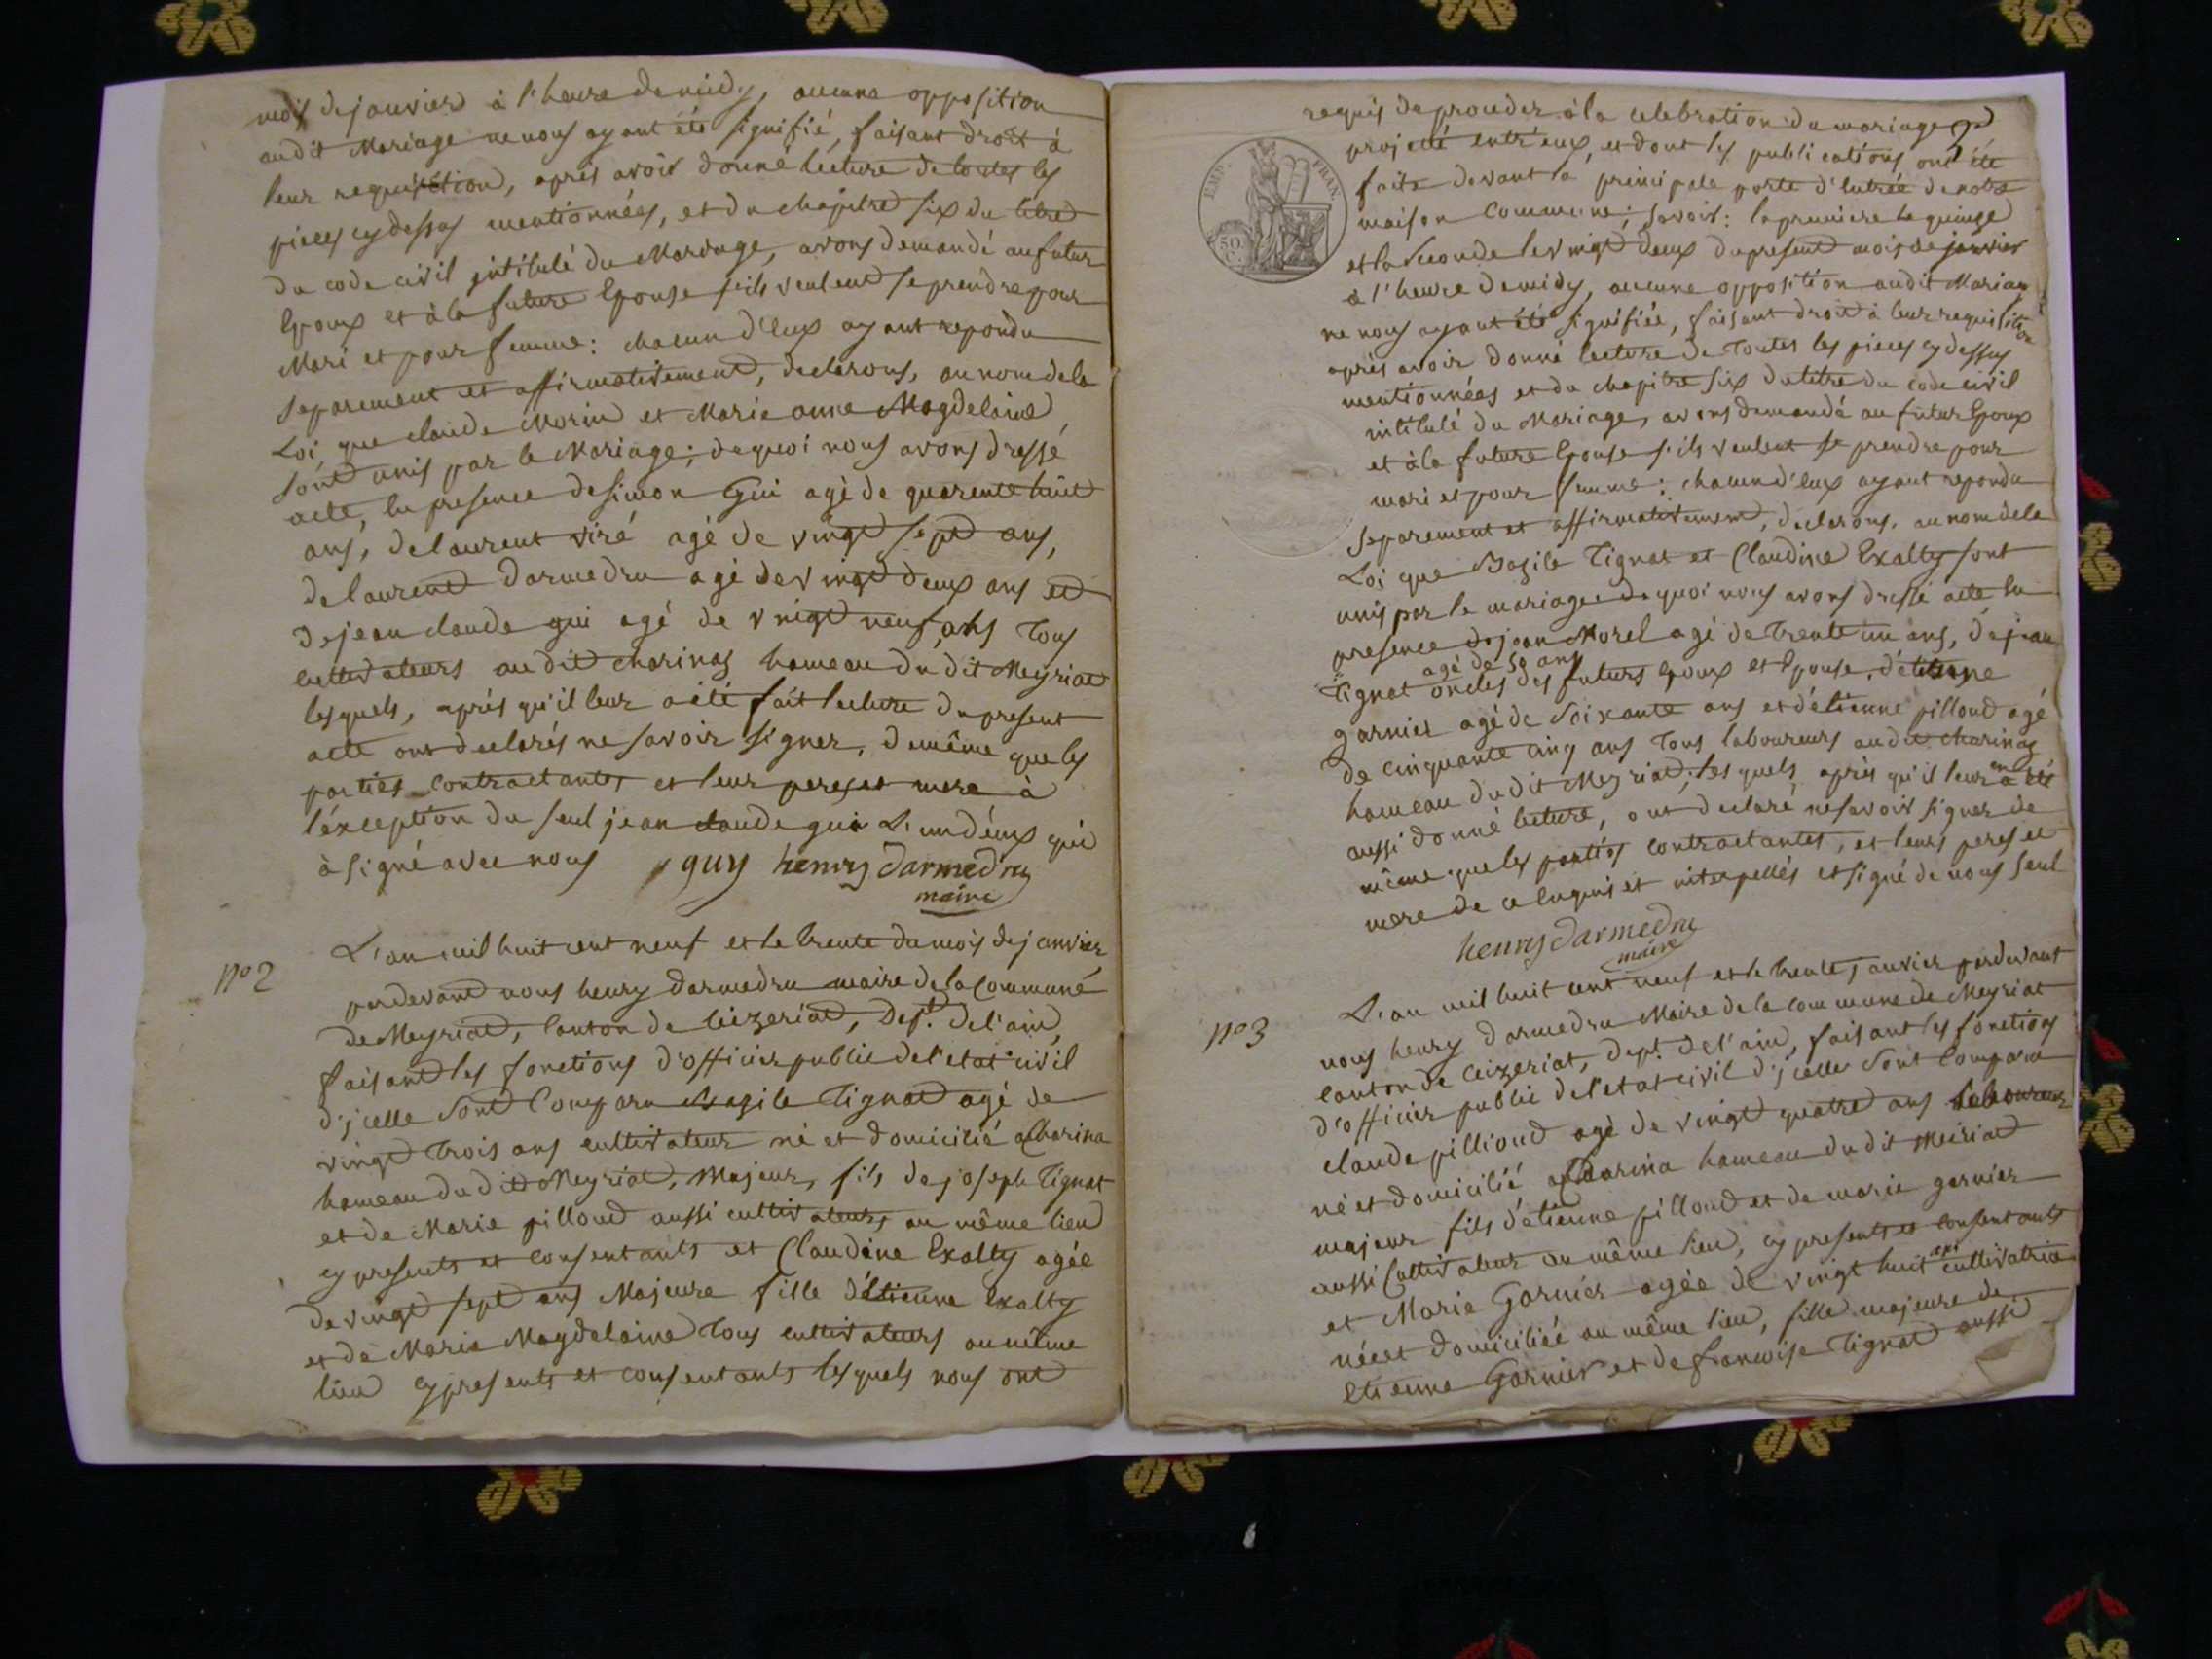 mois de janvier à l'heure de midy, aucune opposition
audit Mariage ne nous ayant été signifié, faisant droit à
leur requisition, après avoir donné lecture de toutes les
pieces cy dessus mentionnées, et du chapitre six du titre
du code civil intitulé du Mariage, avons demandé au futur
Epoux et à la future Epouse s'ils veulent se prendre pour
Mari et pour femme: chacun d'eux ayant repondu
separement et affirmativement, declarons, au nom de la
Loi, que claude Morin et Marie anne Magdelaine
sont unis par le Mariage; de quoi nous avons dressé
acte, en presence de simon Gui agé de quarente huit
ans, de laurent viré agé de vingt sept ans,
de laurent Darmedru agé de vingt deux ans et
de jean claude gui agé de vingt neuf ans Tous
cultivateurs audit charinas hameau du dit Meyriat
lesquels, après qu'il leur a été fait lecture du present
acte ont declarés ne savoir signer, de même que les
parties contractantes et leur peres et mere à
l'éxception du seul jean claude gui L'un d'eux qui
à signé avec nous guy henry darmedru
maire
nº 2
L'an mil huit cent neuf et le trente du mois de janvier,
pardevant nous henry darmedru maire de la Commune
de Meyriat, Canton de Ceizeriat, Dept. de l'ain,
faisant les fonctions d'officier public de l'etat civil
d'jcelle Sont Comparu Bazile Tignat agé de
vingt trois ans cultivateur né et domicilié a Charina
hameau du dit Meyriat, Majeur, fils de joseph Tignat
et de Marie pilloud aussi cultivateurs au même lieu
cy presents et consentants et Claudine Exalty agée
de vingt sept ans Majeure fille d'étienne Exalty
et de Marie Magdelaine Tous cultivateurs au même
lieu cy presents et consentants lesquels nous ont
requis de proceder à la celebration du mariage
projetté entr'eux, et dont les publications ont été
EMP. FRAN.
faite devant la principale porte d'Entrée de notre
maison Commune; Savoir: la premiere le quinze
50 C.
et la Seconde le vingt deux du present mois de janvier
à l'heure de midy, aucune opposition audit Mariage
ne nous ayant été signifiée, faisant droit à leur requisition
après avoir donné lecture de Toutes les pieces cy dessus
mentionnées et du chapitre six du titre du code civil
intitulé du Mariage, avons demandé au futur Epoux
et à la future Epouse s'ils veulent se prendre pour
mari et pour femme: chacun d'eux ayant repondu
Separement et affirmativement, declarons, au nom de la
Loi que Bazile Tignat et Claudine Exalty sont
unis par le mariage de quoi nous avons dressé acte, En
presence de jean Morel agé de trente un ans, de jean
agé de 50 ans
Tignat oncles des futurs Epoux et Epouse, d'étienne
garnier agé de Soixante ans et d'étienne pilloud agé
de cinquante cinq ans Tous laboureurs au dit charinas
hameau du dit Meyriat; lesquels, après qu'il leur en a été
aussi donné lecture, ont declaré ne savoir signer de
même que les parties contractantes, et leurs peres et
mere de ce Enquis et interpellés et signé de nous seul
henry darmedru
maire
nº 3
L'an mil huit cent neuf et le trente janvier pardevant
nous henry darmedru Maire de la commune de Meyriat
canton de Ceizeriat, dept. de l'ain, faisant les fonctions
d'officier public de l'etat civil d'jcelle Sont Comparu
claude pillioud agé de vingt quatre ans laboureur
né et domicilié a Charina hameau du dit Meiriat
majeur fils d'etienne pilloud et de marie garnier
aussi Cultivateur au même lieu, cy presents et consentants
et Marie Garnier agée de vingt huit ans cultivatrice
née et domiciliée au même lieu, fille majeure de
Etienne Garnier et de francoise Tignat aussi